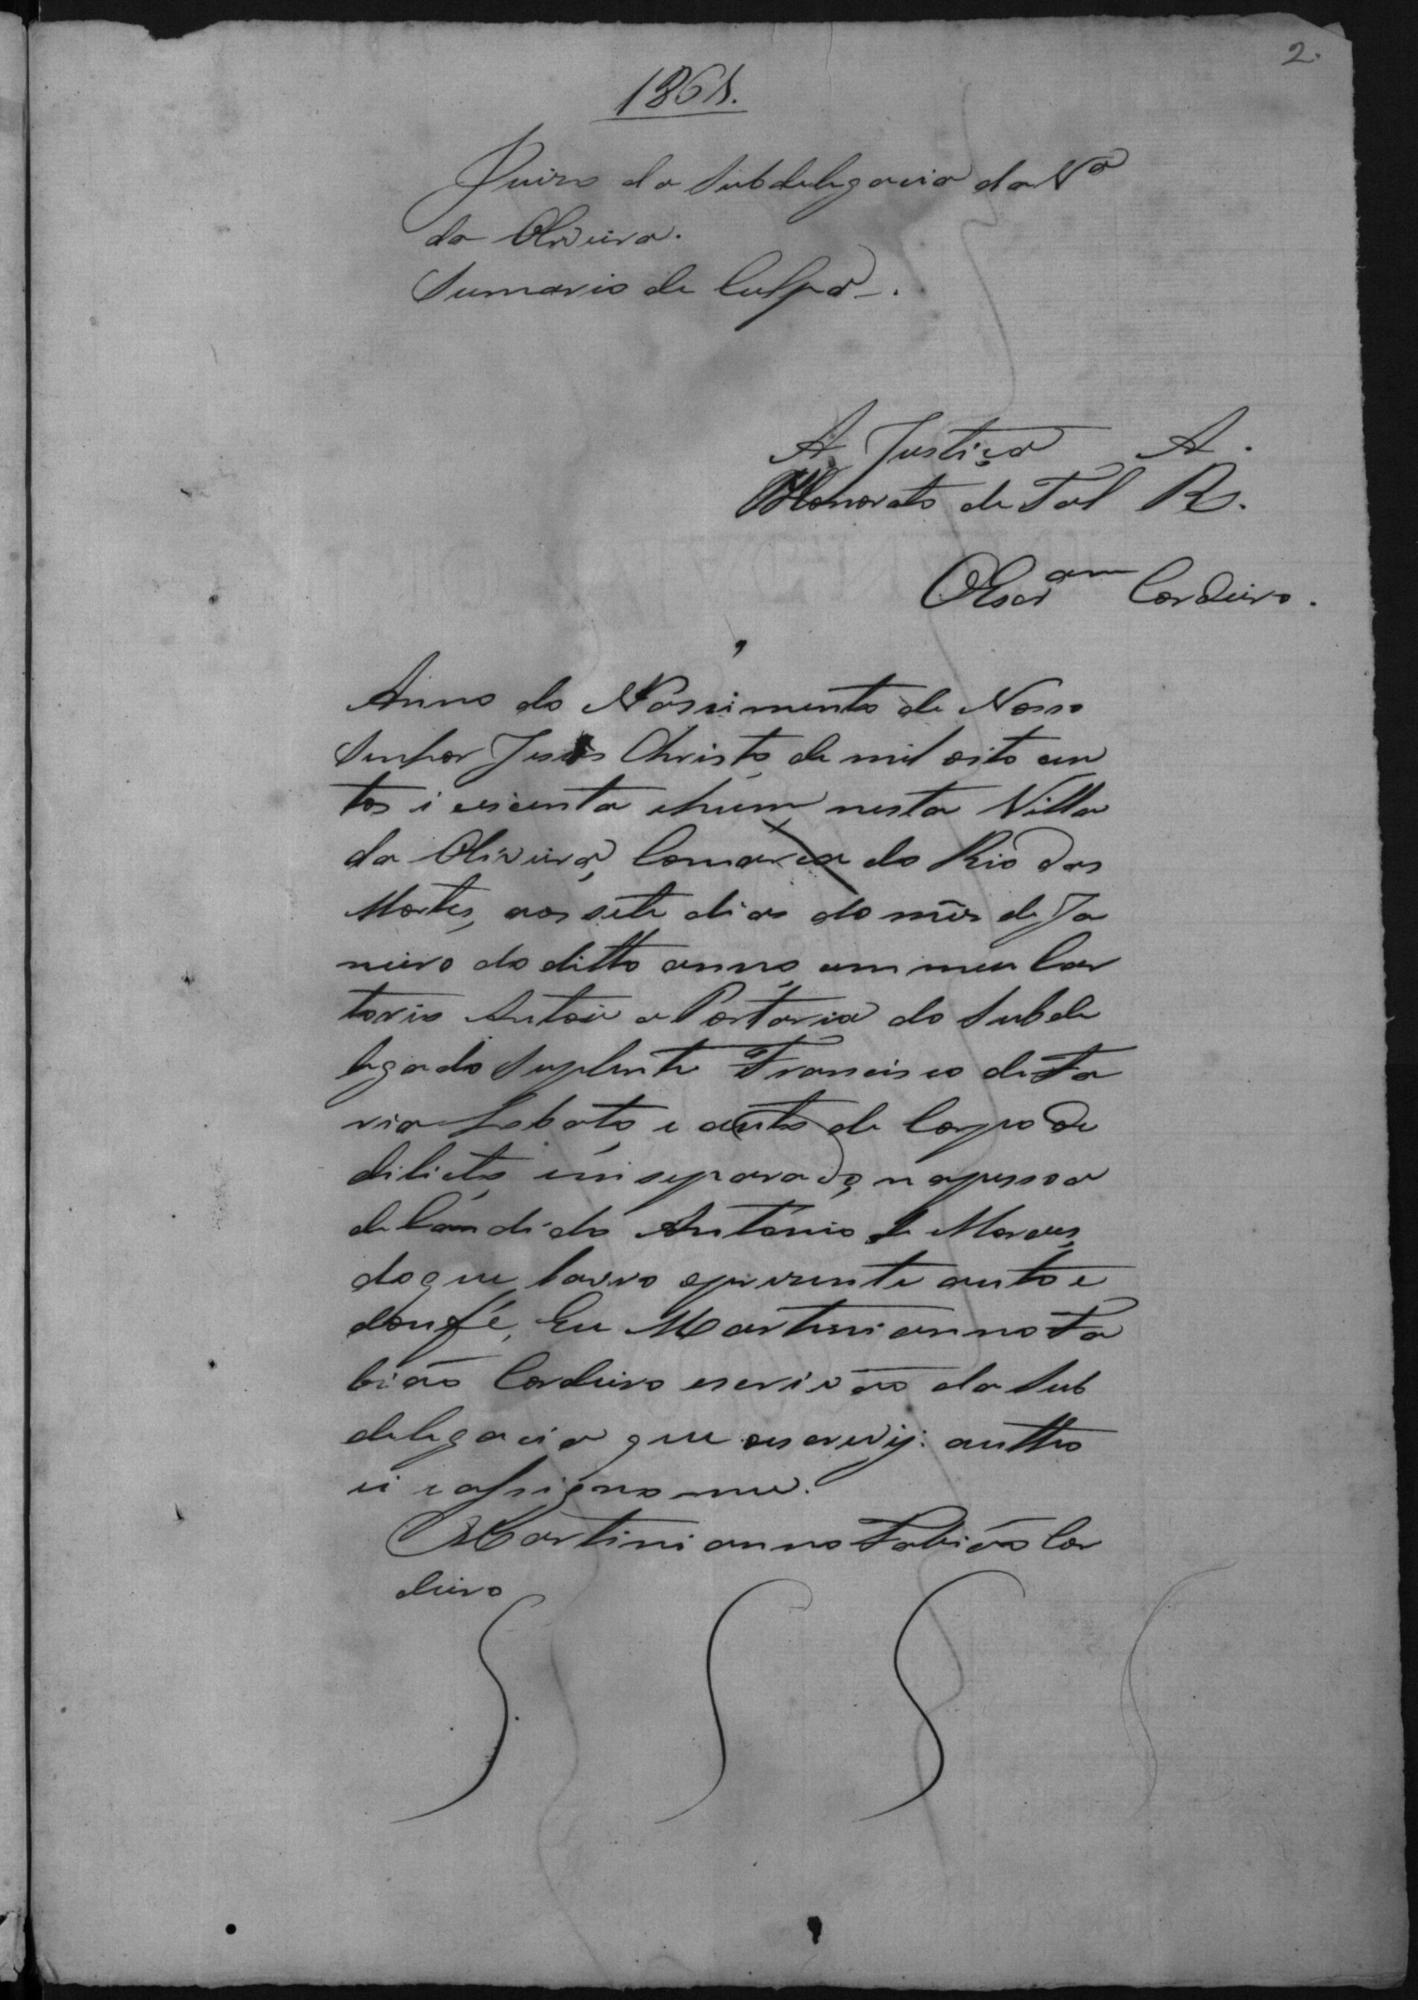 2.
1861.
Juizo da Subdelegacia da Vª
da Oliveira.
Summario de Culpa.
A Justiça A.
Honorato de Tal R.
O Escram Cordeiro.
Anno do Nascimento de Nosso
Senhor Jesus Christo de mil oito cen
tos i cecenta ehum nesta Villa
da Oliveira, Comarca do Rio das
Mortes, aos sete dias do mês de Ja
neiro do ditto anno, em meu Car
torio Autoei a Portaria do Subde
legado Suplente Francisco de Fa
ria Lobato, e auto de Corpo de
dilicto, em separado, na pessoa
de Candido Antonio de Moraes,
do que lavro oprezente auto e
dou fé, Eu Martinianno Fa
bião Cordeiro escrivão da Sub
delegacia que escrevij: auttho
ei e assigno me.
Martinianno Fabião Cor
deiro